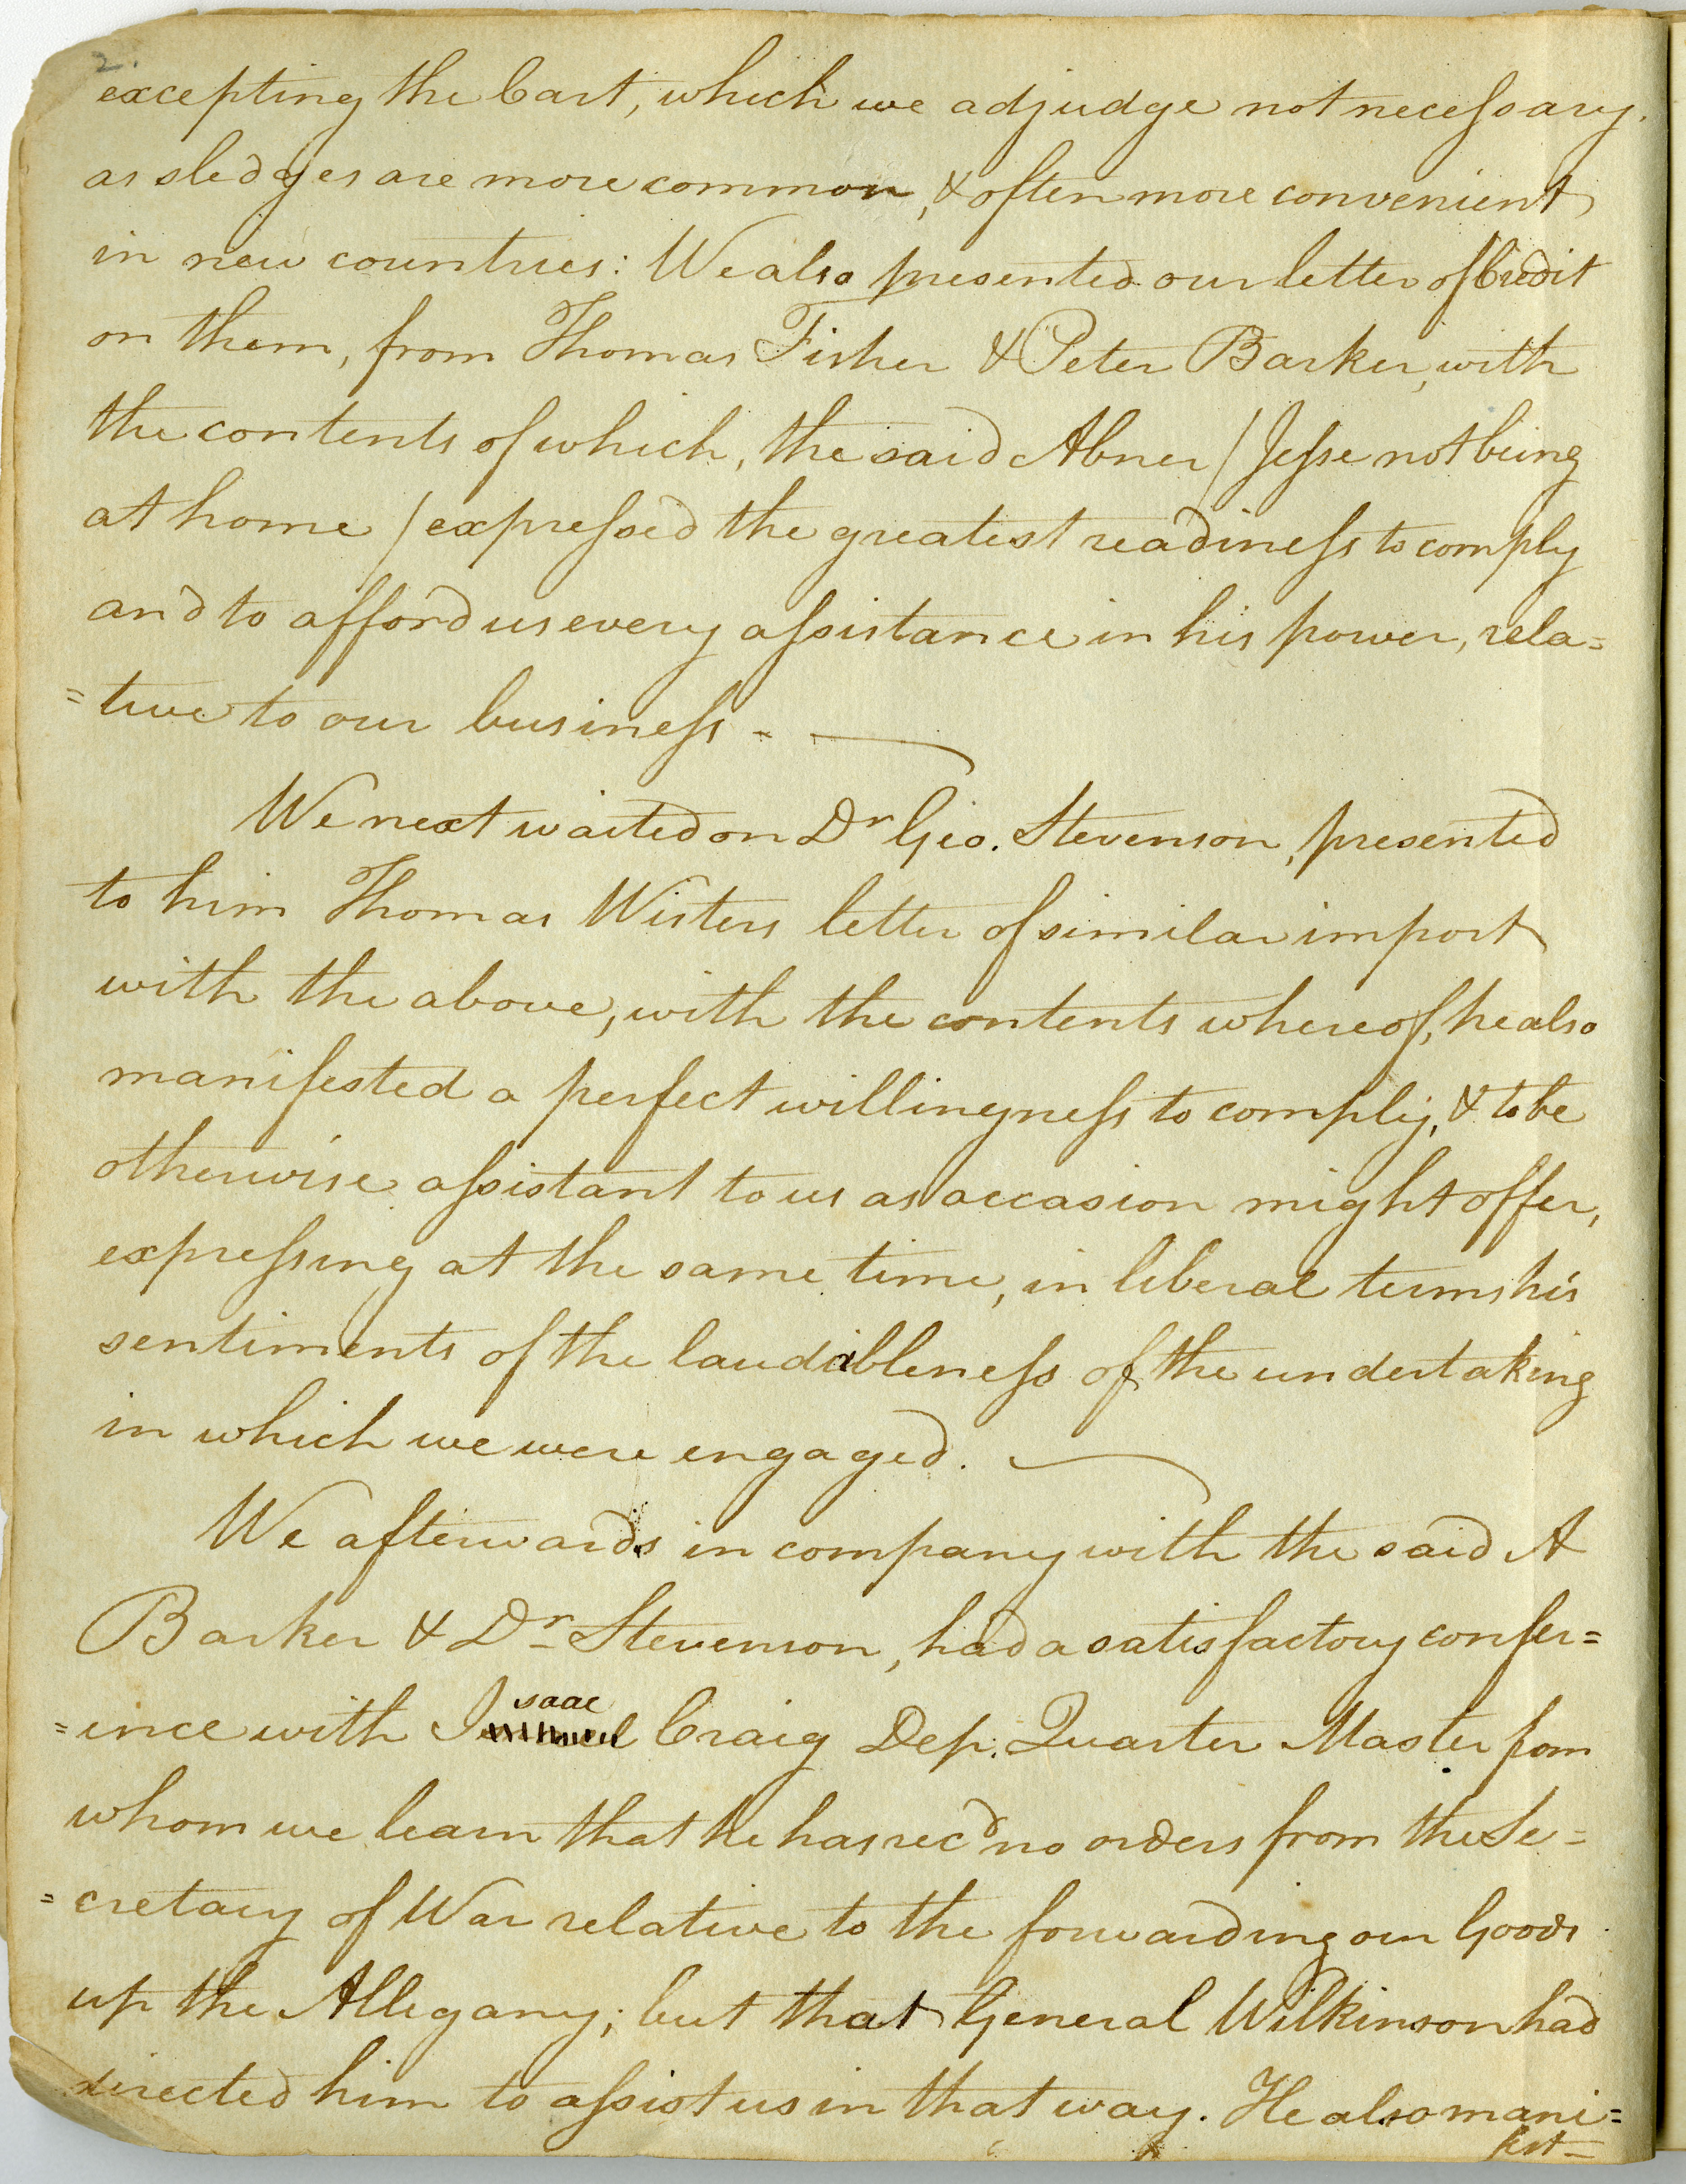 2.
excepting the Cart, which we adjudge not necessary.
as sledges are more common, & often more convenient
in new countries: We also presented our letter of Credit
on them, from Thomas Fisher & Peter Barker, with
the contents of which, the said Abner / Jesse not being
at home / expressed the greatest readiness to comply
and to afford us every assistance in his power, rela=
=tive to our business -
We next waited on Dr Geo. Stevenson, presented
to him Thomas Wisters letter of similar import
with the above, with the contents whereof, he also
manifested a perfect willingness to comply, & to be
otherwise assistant to us as occasion might offer,
expressing at the same time, in liberal terms his
sentiments of the laudableness of the undertaking
in which we were engaged.
We afterwards in company with the said A
Barker & Dr Stevenson, had a satisfactory confer=
=ince with Isaac Craig Dep. Quarter Master fom
whom we learn that he has recd no orders from the Se=
=cretary of War relative to the forwarding our Goods
up the Allegany; but that General Wilkinson had
directed him to assist us in that way. He also mani=
fest-